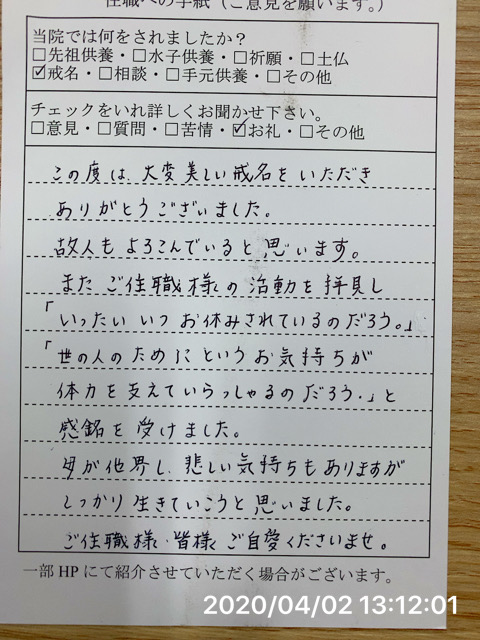 住職への手紙（ご意見を願います。）
当院では何をされましたか？
□先祖供養・□水子供養・□祈願・□土仏
☑戒名・□相談・□手元供養・□その他
チェックをいれ詳しくお聞かせ下さい。
□意見・□質問・□苦情・☑お礼・□その他
この度は、大変美しい戒名をいただき
ありがとうございました。
故人もよろこんでいると思います。
またご住職様の活動を拝見し
「いったいいつお休みされているのだろう。」
「世の人のためにというお気持ちが
体力を支えていらっしゃるのだろう。」と
感銘を受けました。
母が他界し、悲しい気持ちもありますが
しっかり生きていこうと思いました。
ご住職様、皆様、ご自愛くださいませ。
一部HPにて紹介させていただく場合がございます。
2020/04/02 13:12:01